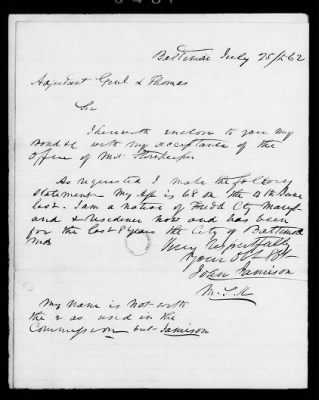 Baltimore July 25/62
Adjutant Genl L Thomas
Sir
I herewith enclose to you my
Bond &c with my acceptance of the
Office of Md. Storekeeper
As requested I make the following
statement My Age is 68 on the 4th June
last. I am a native of Fredk Cty Maryl
and & residence now and has been
for the last 8 years the City of Baltimore
Md
Very respectfully
Your Obt Svt
John Jamison
M.S.K
My name is not with
the r as used in the
Commission but Jamison